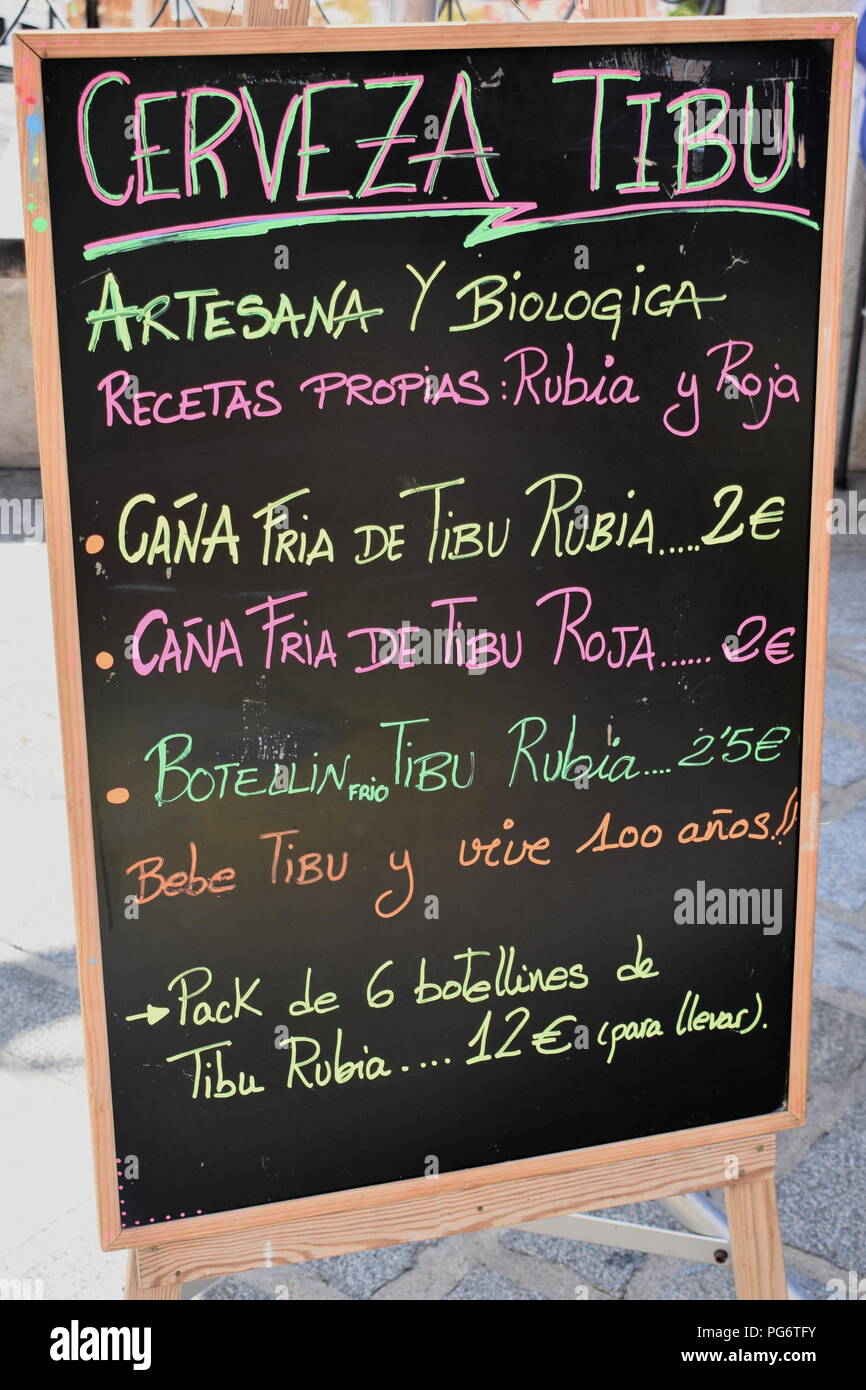 CERVEZA TIBU
ARTESANA Y BIOLOGICA
RECETAS PROPIAS: Rubia y Roja
• CAÑA FRIA DE TIBU RUBIA.....2€
• CAÑA FRIA DE TIBU ROJA......2€
• BOTELLIN FRIO TIBU Rubia....2'5€
Bebe TIBU y vive 100 años!!
→ Pack de 6 botellines de
Tibu Rubia....12€ (para llevar).
alamy
Image ID: PG6TFY
www.alamy.com